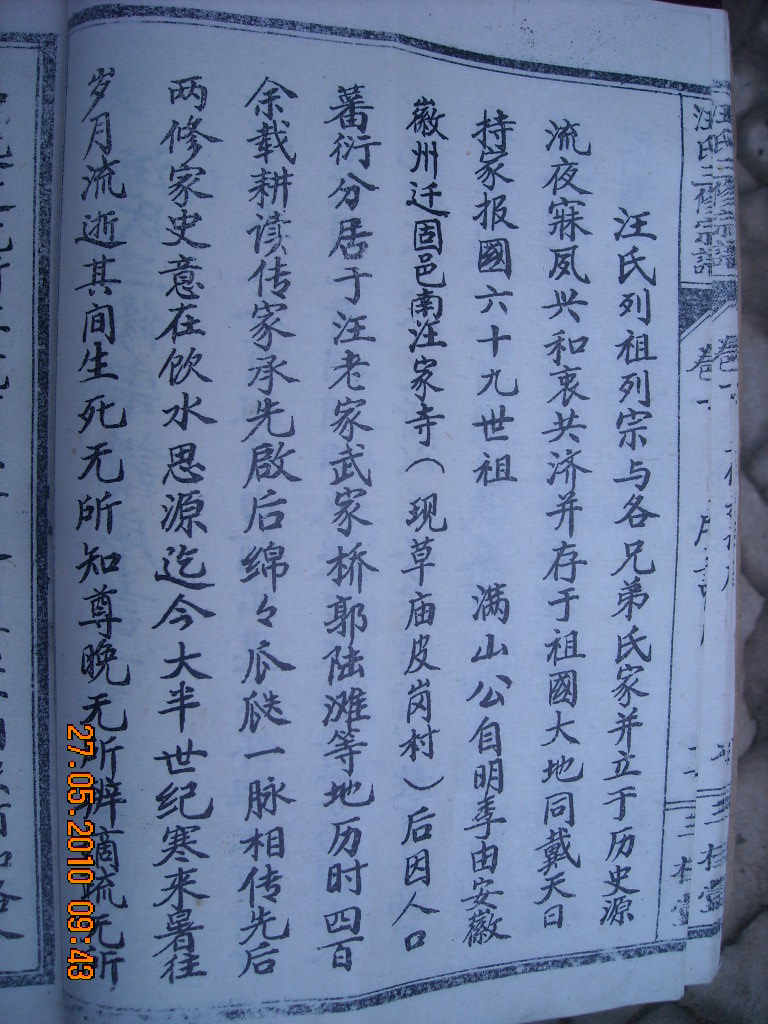 汪氏三修宗譜
三桂堂
汪氏列祖列宗与各兄弟氏家并立于历史源
流夜寐夙兴和衷共济并存于祖國大地同戴天日
持家报國六十九世祖 满山公自明季由安徽
徽州迁固邑南汪家寺（现草庙皮岗村）后因人口
蕃衍分居于汪老家武家桥郭陆滩等地历时四百
余载耕读传家承先啟后绵々瓜瓞一脉相传先后
两修家史意在饮水思源迄今大半世纪寒来暑往
岁月流逝其间生死无所知尊晚无所辨嫡疏无所
27.05.2010 09:43